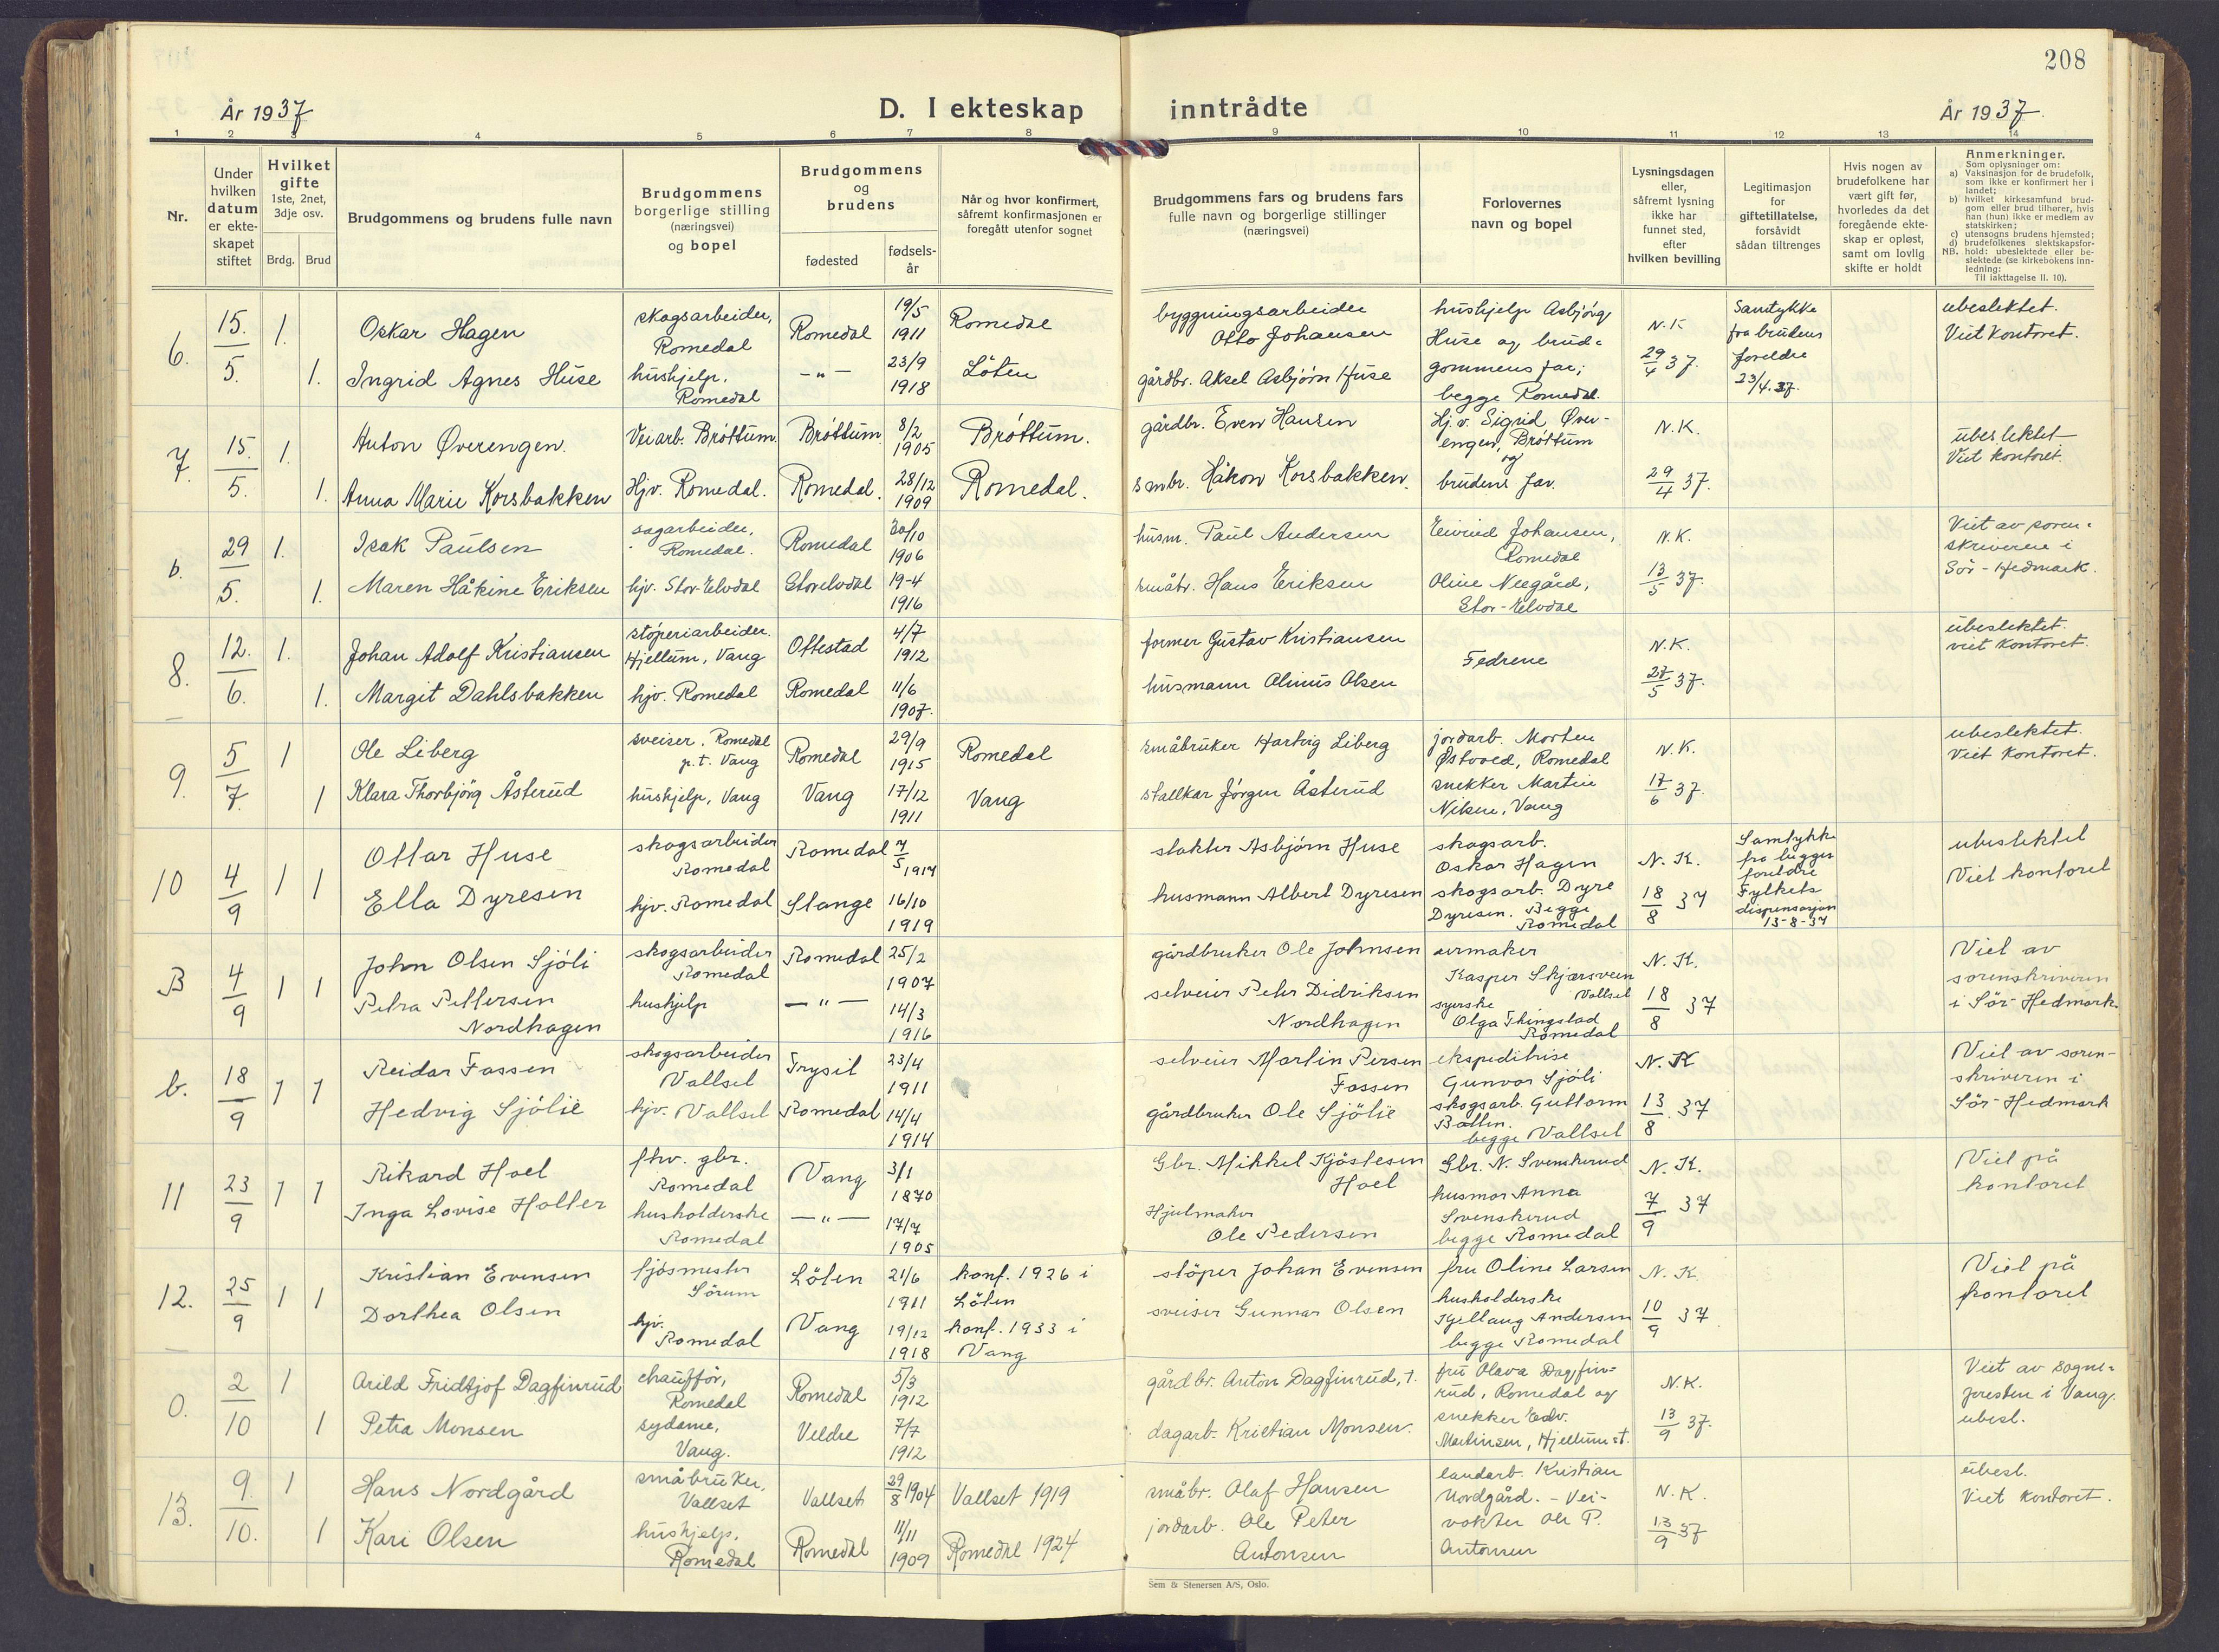 208
År 1937
D. I ekteskap inntrådte
År 1937.
1 2 3 4 5 6 7 8 9 10 11 12 13 14
Nr.
Under hvilken datum er ekte-skapet stiftet
Hvilket gifte 1ste, 2net, 3dje osv.
Brdg. Brud
Brudgommens og brudens fulle navn
Brudgommens borgerlige stilling (næringsvei) og bopel
Brudgommens og brudens
fødested
fødsels-år
Når og hvor konfirmert, såfremt konfirmasjonen er foregått utenfor sognet
Brudgommens fars og brudens fars fulle navn og borgerlige stillinger (næringsvei)
Forlovernes navn og bopel
Lysningsdagen eller, såfremt lysning ikke har funnet sted, efter hvilken bevilling
Legitimasjon for giftetillatelse, forsåvidt sådan tiltrenges
Hvis nogen av brudefolkene har vært gift før, hvorledes da det foregående ekte-skap er opløst, samt om lovlig skifte er holdt
Anmerkninger.
Som oplysninger om:
a) Vaksinasjon for de brudefolk, som ikke er konfirmert her i landet;
b) hvilket kirkesamfund brud-gom eller brud tilhører, hvis han (hun) ikke er medlem av statskirken;
c) utensogns brudens hjemsted;
d) brudefolkenes slektskapsfor-hold: ubeslektede eller be-slektede (se kirkebokens inn-ledning:
NB. Til iakttagelse II. 10).
6. 15./5. 1. Oskar Hagen skogsarbeider, Romedal Romedal 19/5 1911 Romedal byggningsarbeider Otto Johansen hushjelp Asbjörg Huse og brud- N.K Samtykke fra brudens ubeslektet. Viet kontoret.
1. Ingrid Agnes Huse hushjelp, Romedal -"- 23/9 1918 Löten gårdbr. Aksel Asbjörn Huse gommens far; begge Romedal. 29/4 37. foreldre 23/4.37.
7. 15./5. 1. Anton Øverengen. Veiarb. Bröttum. Bröttum. 8/2 1905 Bröttum. gårdbr. Even Hansen Hj.v. Sigrid Øver-engen, Bröttum og N.K. ubeslektet Viet kontoret.
1. Anna Marie Korsbakken Hjv. Romedal. Romedal. 28/12 1909 Romedal. smbr. Håkon Korsbakken. brudens far. 29/4 37.
b. 29/5. 1. Isak Paulsen sagarbeider, Romedal. Romedal 30/10 1906 husm. Paul Andersen Eivind Johansen, Romedal N.K. Viet av soren-skriveren i Sör-Hedmark.
1. Maren Håkine Eriksen hjv. Stor-Elvdal Storelvdal 19-4 1916 småbr. Hans Eriksen Oline Neegård, Stor-Elvdal 13/5 37.
8. 12./6. 1. Johan Adolf Kristiansen stöperiarbeider. Hjellum, Vang Ottestad 4/7 1912 former Gustav Kristiansen Fedrene N.K. ubeslektet. viet kontoret.
1. Margit Dahlsbakken hjv. Romedal Romedal 11/6 1907. husmann Olinus Olsen 27/5 37.
9. 5/7. 1 Ole Liberg sveiser. Romedal p.t. Vang Romedal 29/9 1915 Romedal småbruker Hartvig Liberg jordarb. Morten Østvold, Romedal N.K. ubeslektet. Viet kontoret.
1 Klara Thorbjörg Åsterud hushjelp, Vang Vang 17/12 1911 Vang stallkar Jörgen Åsterud snekker Martin Nilsen, Vang 17/6 37.
10 4/9 1 1 Ottar Huse skogsarbeider Romedal Romedal 7/5 1917 slakter Asbjörn Huse skogsarb. Oskar Hagen N.K. Samtykke fra begges foreldre ubeslektet Viet kontoret
Ella Dyresen hjv. Romedal Stange 16/10 1919 husmann Albert Dyresen skogsarb. Dyre Dyresen. Begge Romedal 18/8 37 Fylkets dispensasjon 13-8-37
B 4/9 1 1 John Olsen Sjöli skogsarbeider Romedal Romedal 25/2 1907 gårdbruker Ole Johnsen urmaker Kasper Skjærsveen Vallset N.K. Viet av sorenskriveren i Sör-Hedmark.
Petra Pettersen Nordhagen hushjelp -"- 14/3 1916 selveier Peter Didriksen Nordhagen syerske Olga Thingstad Romedal 18/8 37
b. 18/9 1 1 Reidar Fassen skogsarbeider Vallset Trysil 23/4 1911 selveier Martin Persen Fassen ekspeditrise Gunvor Sjöli N.K Viet av soren-skriveren i Sör-Hedmark
Hedvig Sjölie hjv. Vallset Romedal 14/4 1914 gårdbruker Ole Sjölie skogsarb. Guttorm begge Vallset 13/8. 37
11 23/9 1 1 Rikard Hoel fhv. gbr. Romedal Vang 3/1 1870 Gbr. Mikkel Kjöstesen Hoel Gbr. N. Svenskerud N.K. Viet på kontoret
Inga Lovise Holter husholderske Romedal -"- 17/7 1905 Hjulmaker Ole Pedersen husmor Anna Svenskerud begge Romedal 7/9 37
12. 25/9 1 1 Kristian Evensen fjösmester Sörum Löten 21/6 1911 konf. 1926 i Löten stöper Johan Evensen fru Oline Larsen N.K. Viet på kontoret
Dorthea Olsen hjv. Romedal Vang 19/12 1918 konf. 1933 i Vang sveiser Gunnar Olsen husholderske Kjellaug Andersen begge Romedal 10/9 37
0. 2/10 1 Arild Fridtjof Dagfinrud chauffør, Romedal Romedal 5/3 1912 gårdbr. Anton Dagfinrud, t. fru Olava Dagfin-rud, Romedal og N.K. Viet av sogne-presten i Vang. ubesl.
1 Petra Monsen sydame, Vang. Veldre 7/7 1912 dagarb. Kristian Monsen. snekker Edv. Martinsen, Hjellum st. 13/9 37.
13. 9./10. 1 Hans Nordgård småbruker, Vallset Vallset 29/8 1904 Vallset 1919 småbr. Olaf Hansen landarb. Kristian Nordgård. - Vei- N.K. ubesl. Viet kontoret.
1 Kari Olsen hushjelp, Romedal Romedal 11/11 1909 Romedal 1924 jordarb. Ole Peter Antonsen vokter Ole P. Antonsen 13/9 37
Sem & Stenersen A/S, Oslo.